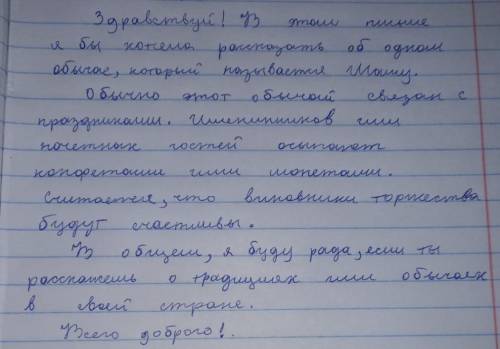 Здравствуй! В этом письме
я бы хотела рассказать об одном
обычае, который называется Шашу.
Обычно этот обычай связан с
праздниками. Именинников или
почетных гостей осыпают
конфетами или монетами.
Считается, что виновники торжества
будут счастливы.
В общем, я буду рада, если ты
расскажешь о традициях или обычаях
в своей стране.
Всего доброго!.